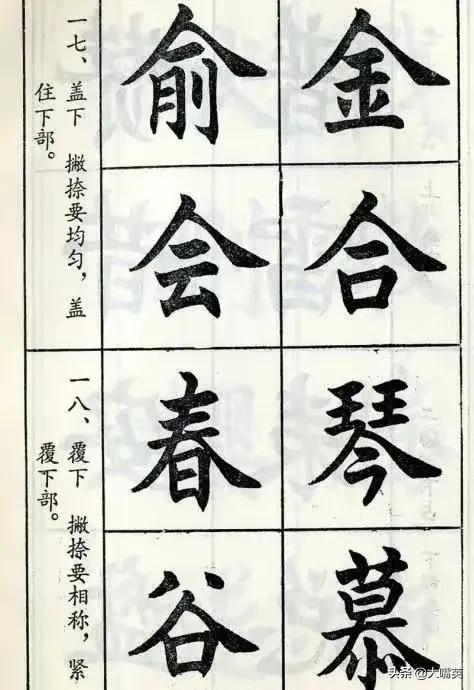 金
合
俞
会
一七、盖下 撇捺要均匀，盖
住下部。
琴
慕
春
谷
一八、覆下 撇捺要相称，紧
覆下部。
头条 @大嘴葵